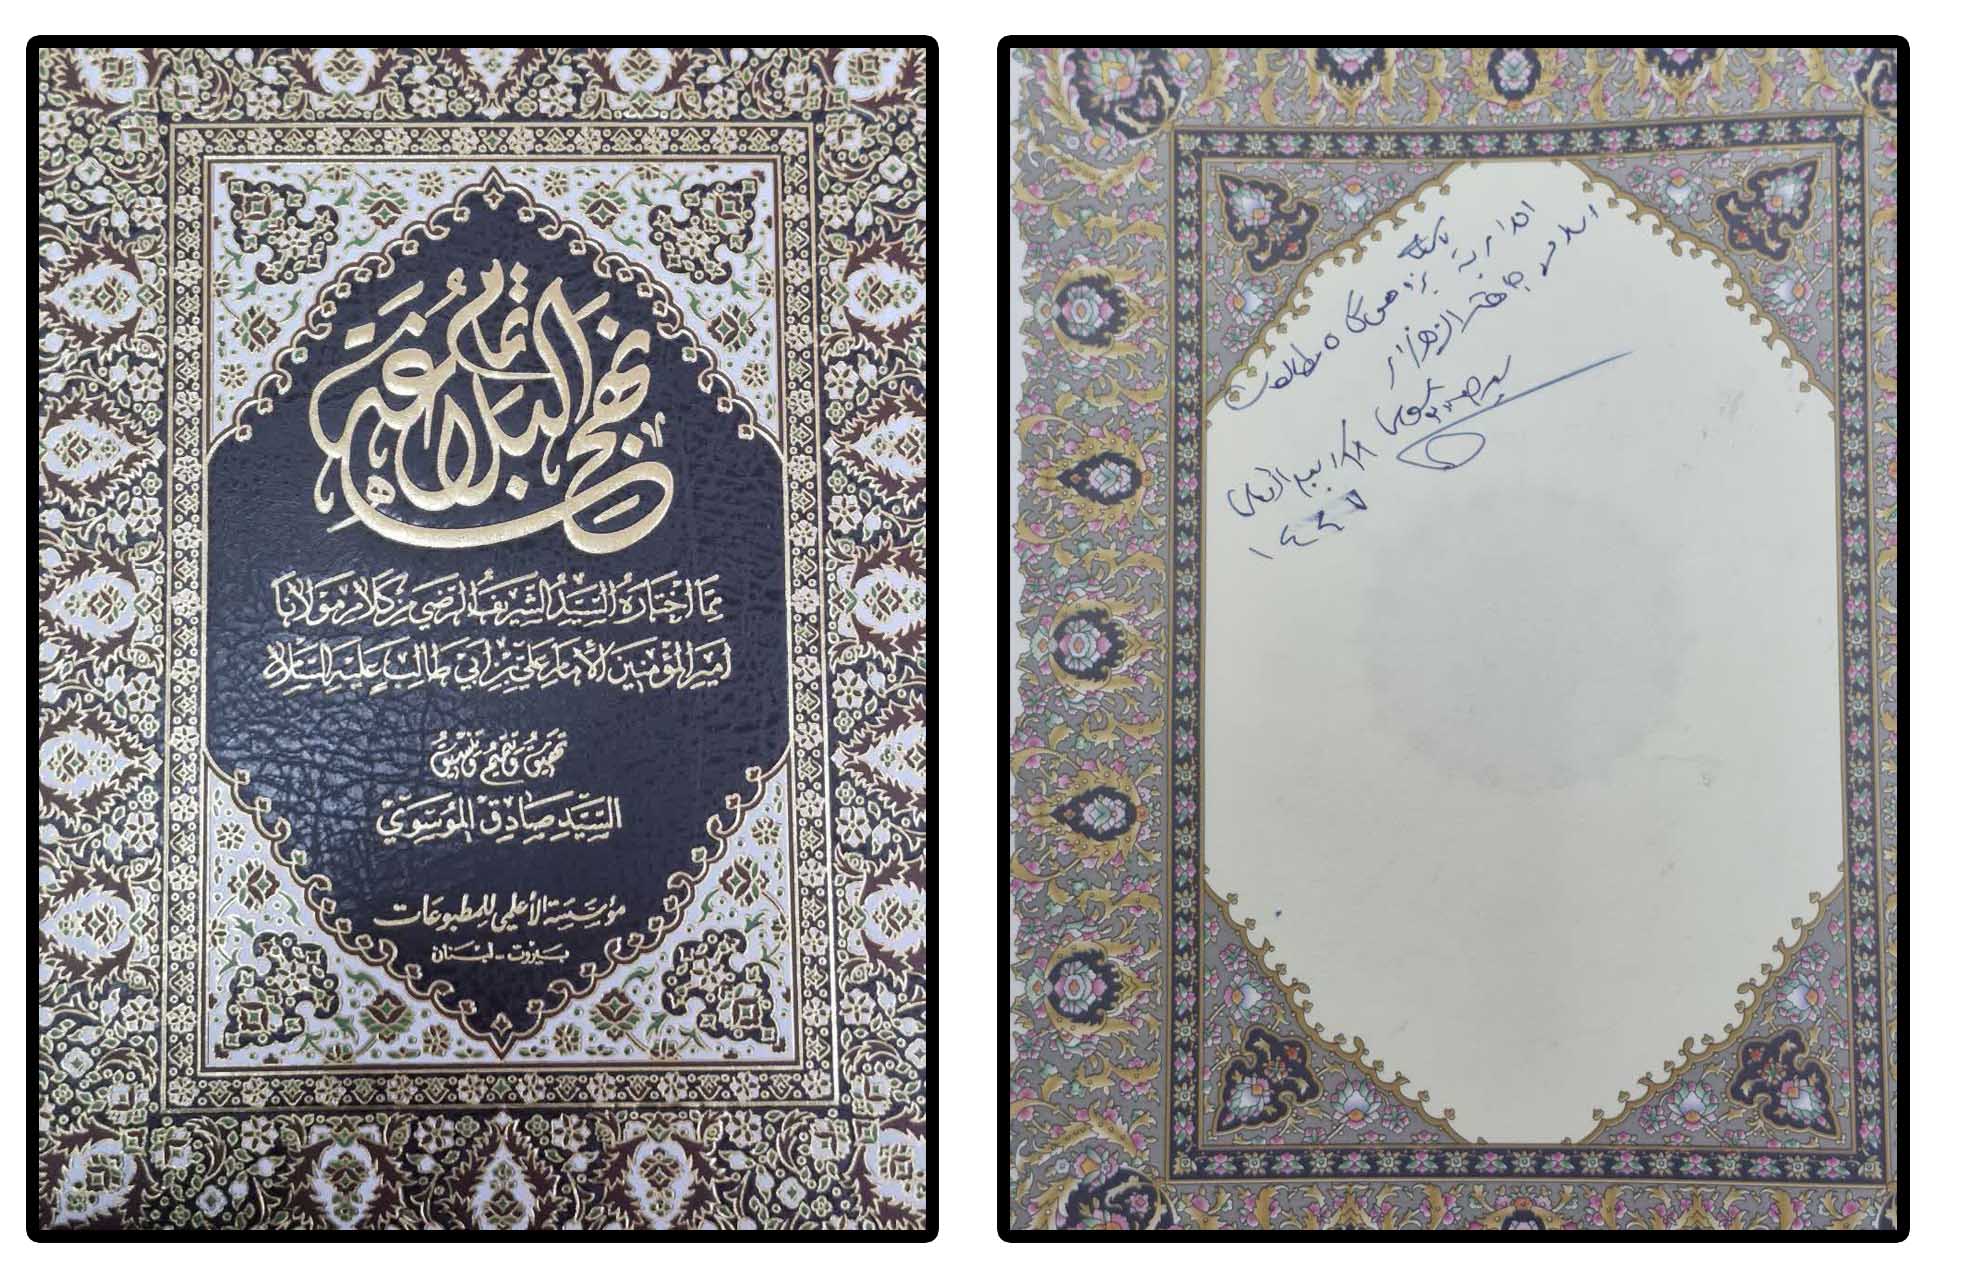 تمام نهج البلاغة
مما اختاره السيد الشريف الرضي من كلام مولانا
امير المؤمنين الامام علي بن ابي طالب عليه السلام
تحقيق وتتميم وتنسيق
السيد صادق الموسوي
مؤسسة الأعلمي للمطبوعات
بيروت - لبنان
اهداء به
پژوهشگاه مطالعات
اسلامی جامعة الزهراء
سید صادق موسوی
ربیع الثانی